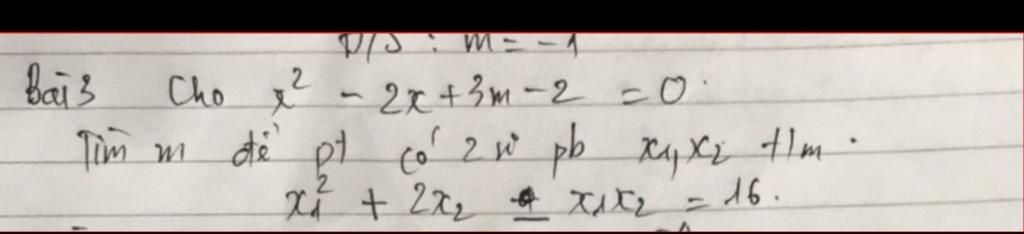 Đ/S : m = -1
Bài 3 Cho x² - 2x + 3m - 2 = 0.
Tìm m để pt có 2 n⁰ pb x₁, x₂ t/m.
x₁² + 2x₂ + x₁x₂ = 16.